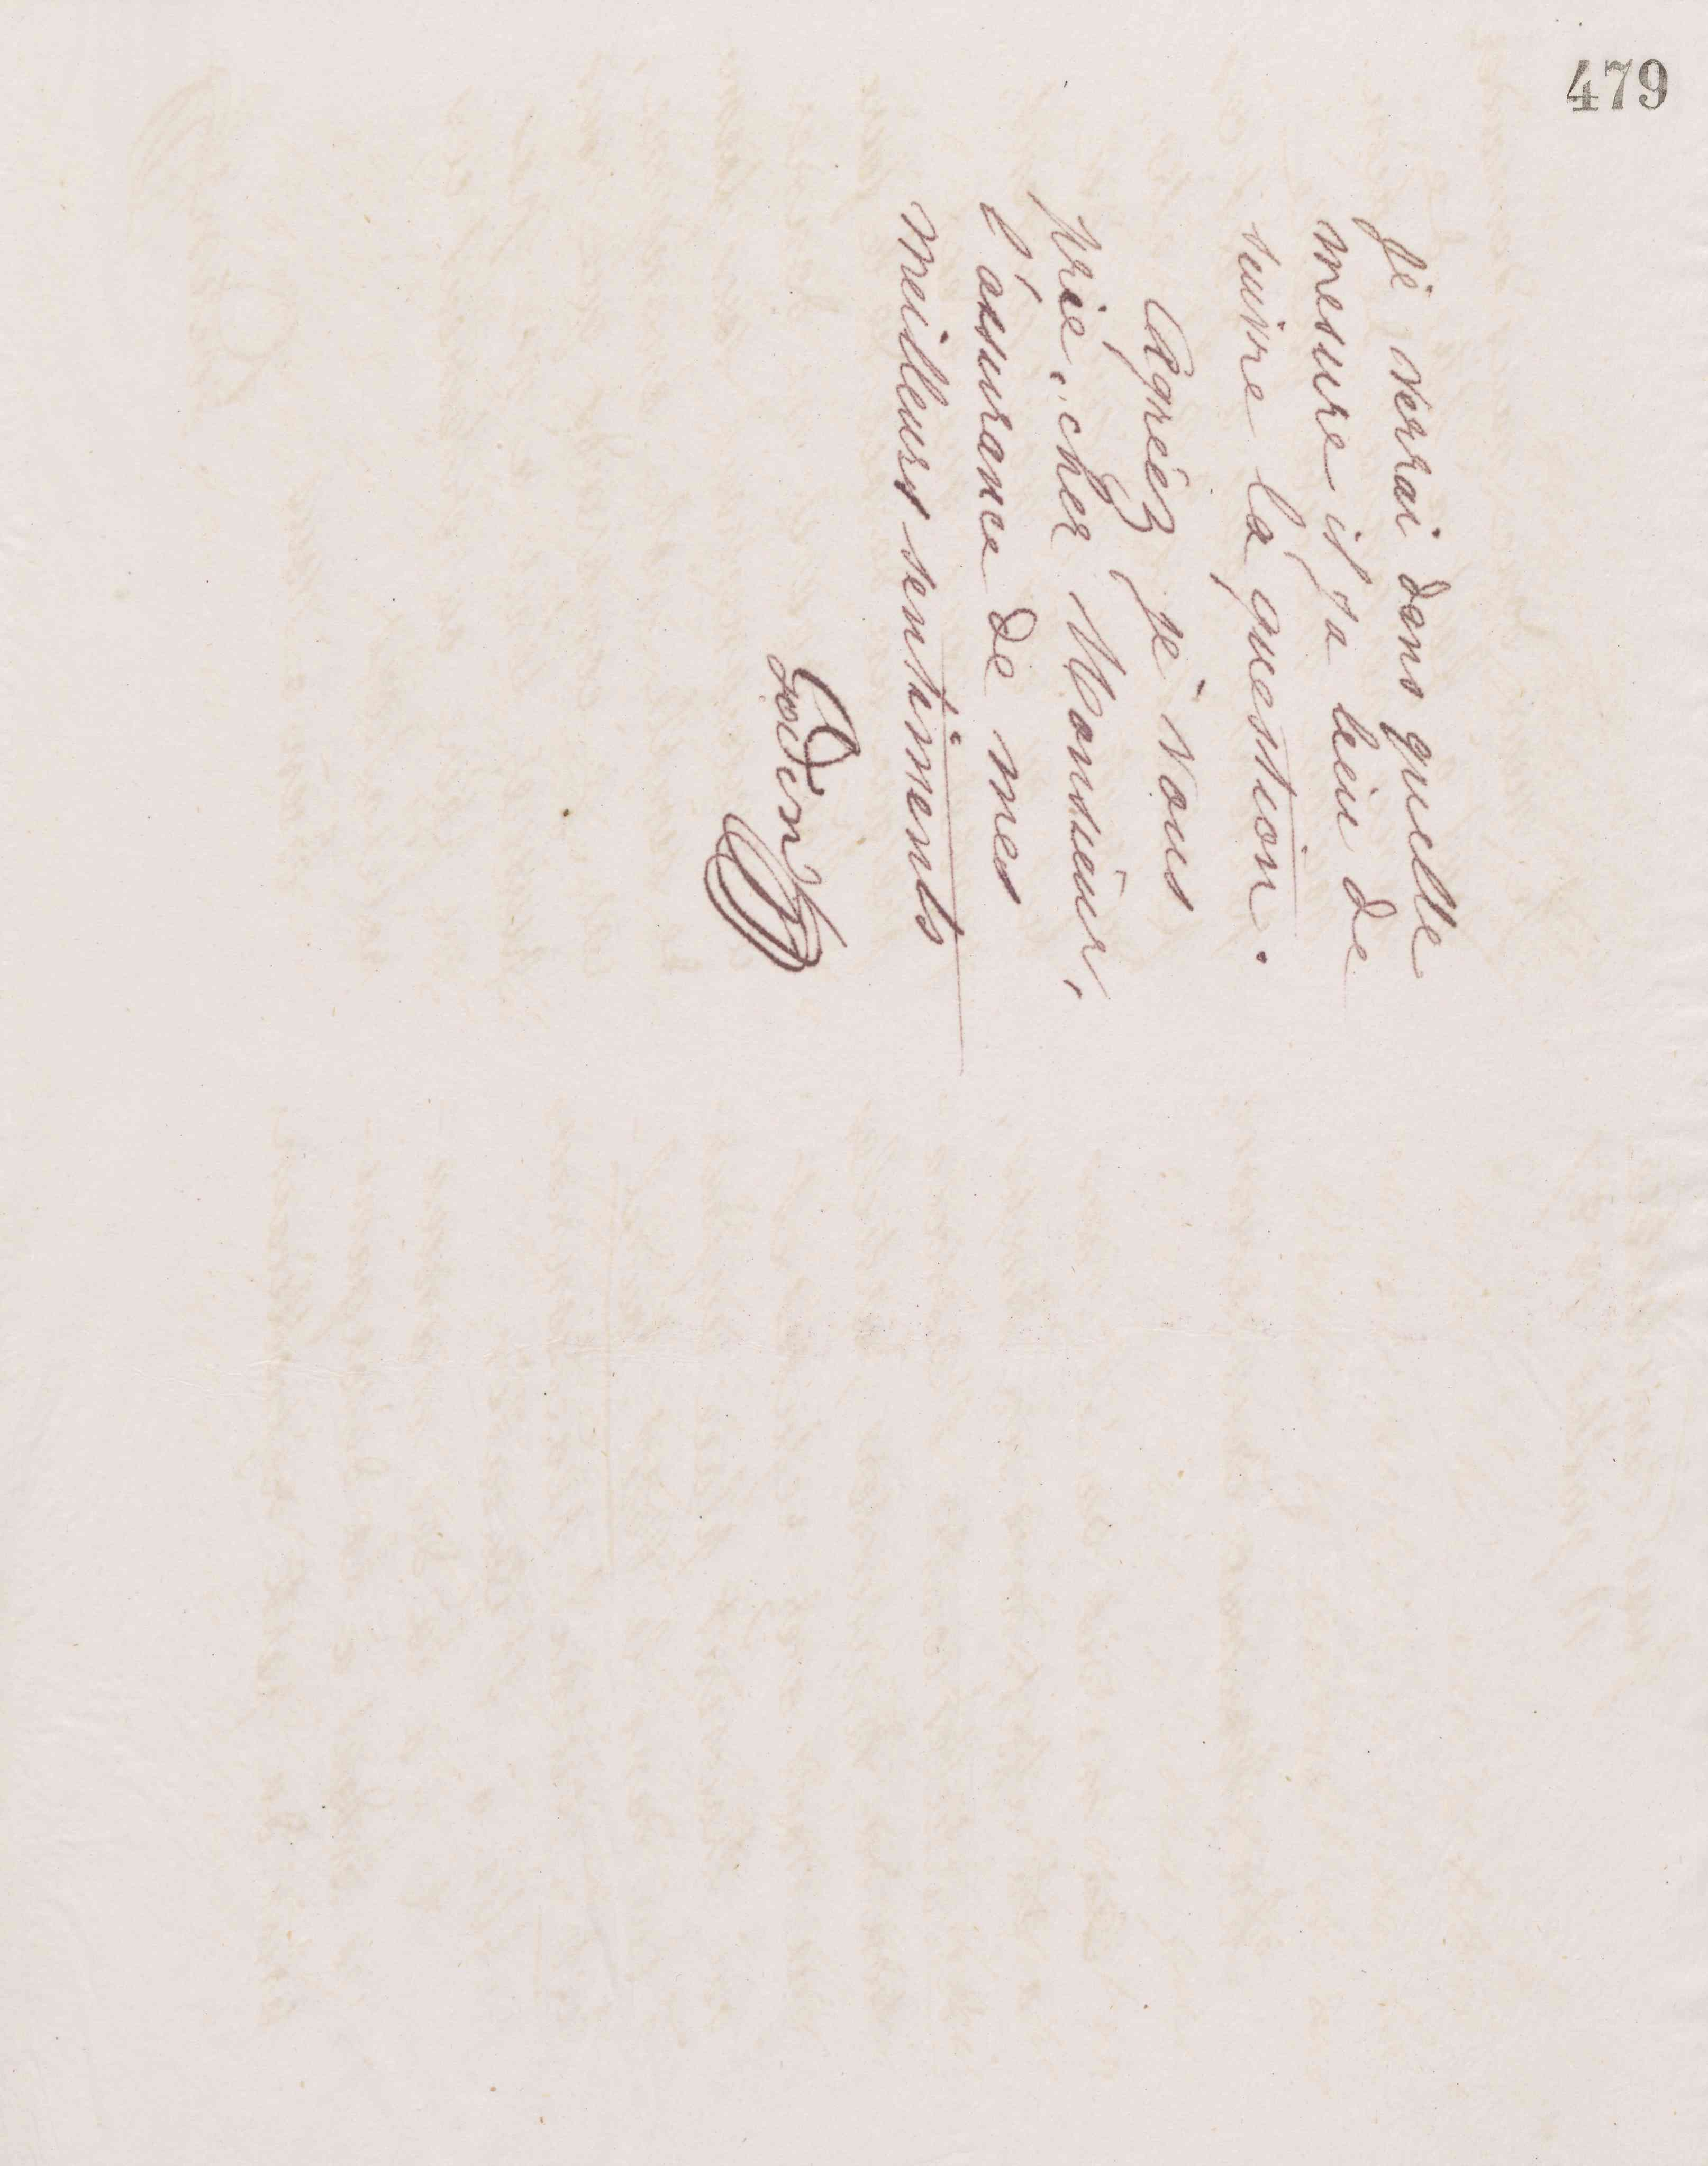 479
je verrai dans quelle
mesure il y a lieu de
suivre la question.
Agréez je vous
prie, cher Monsieur,
l'assurance de mes
meilleurs sentiments
Godin